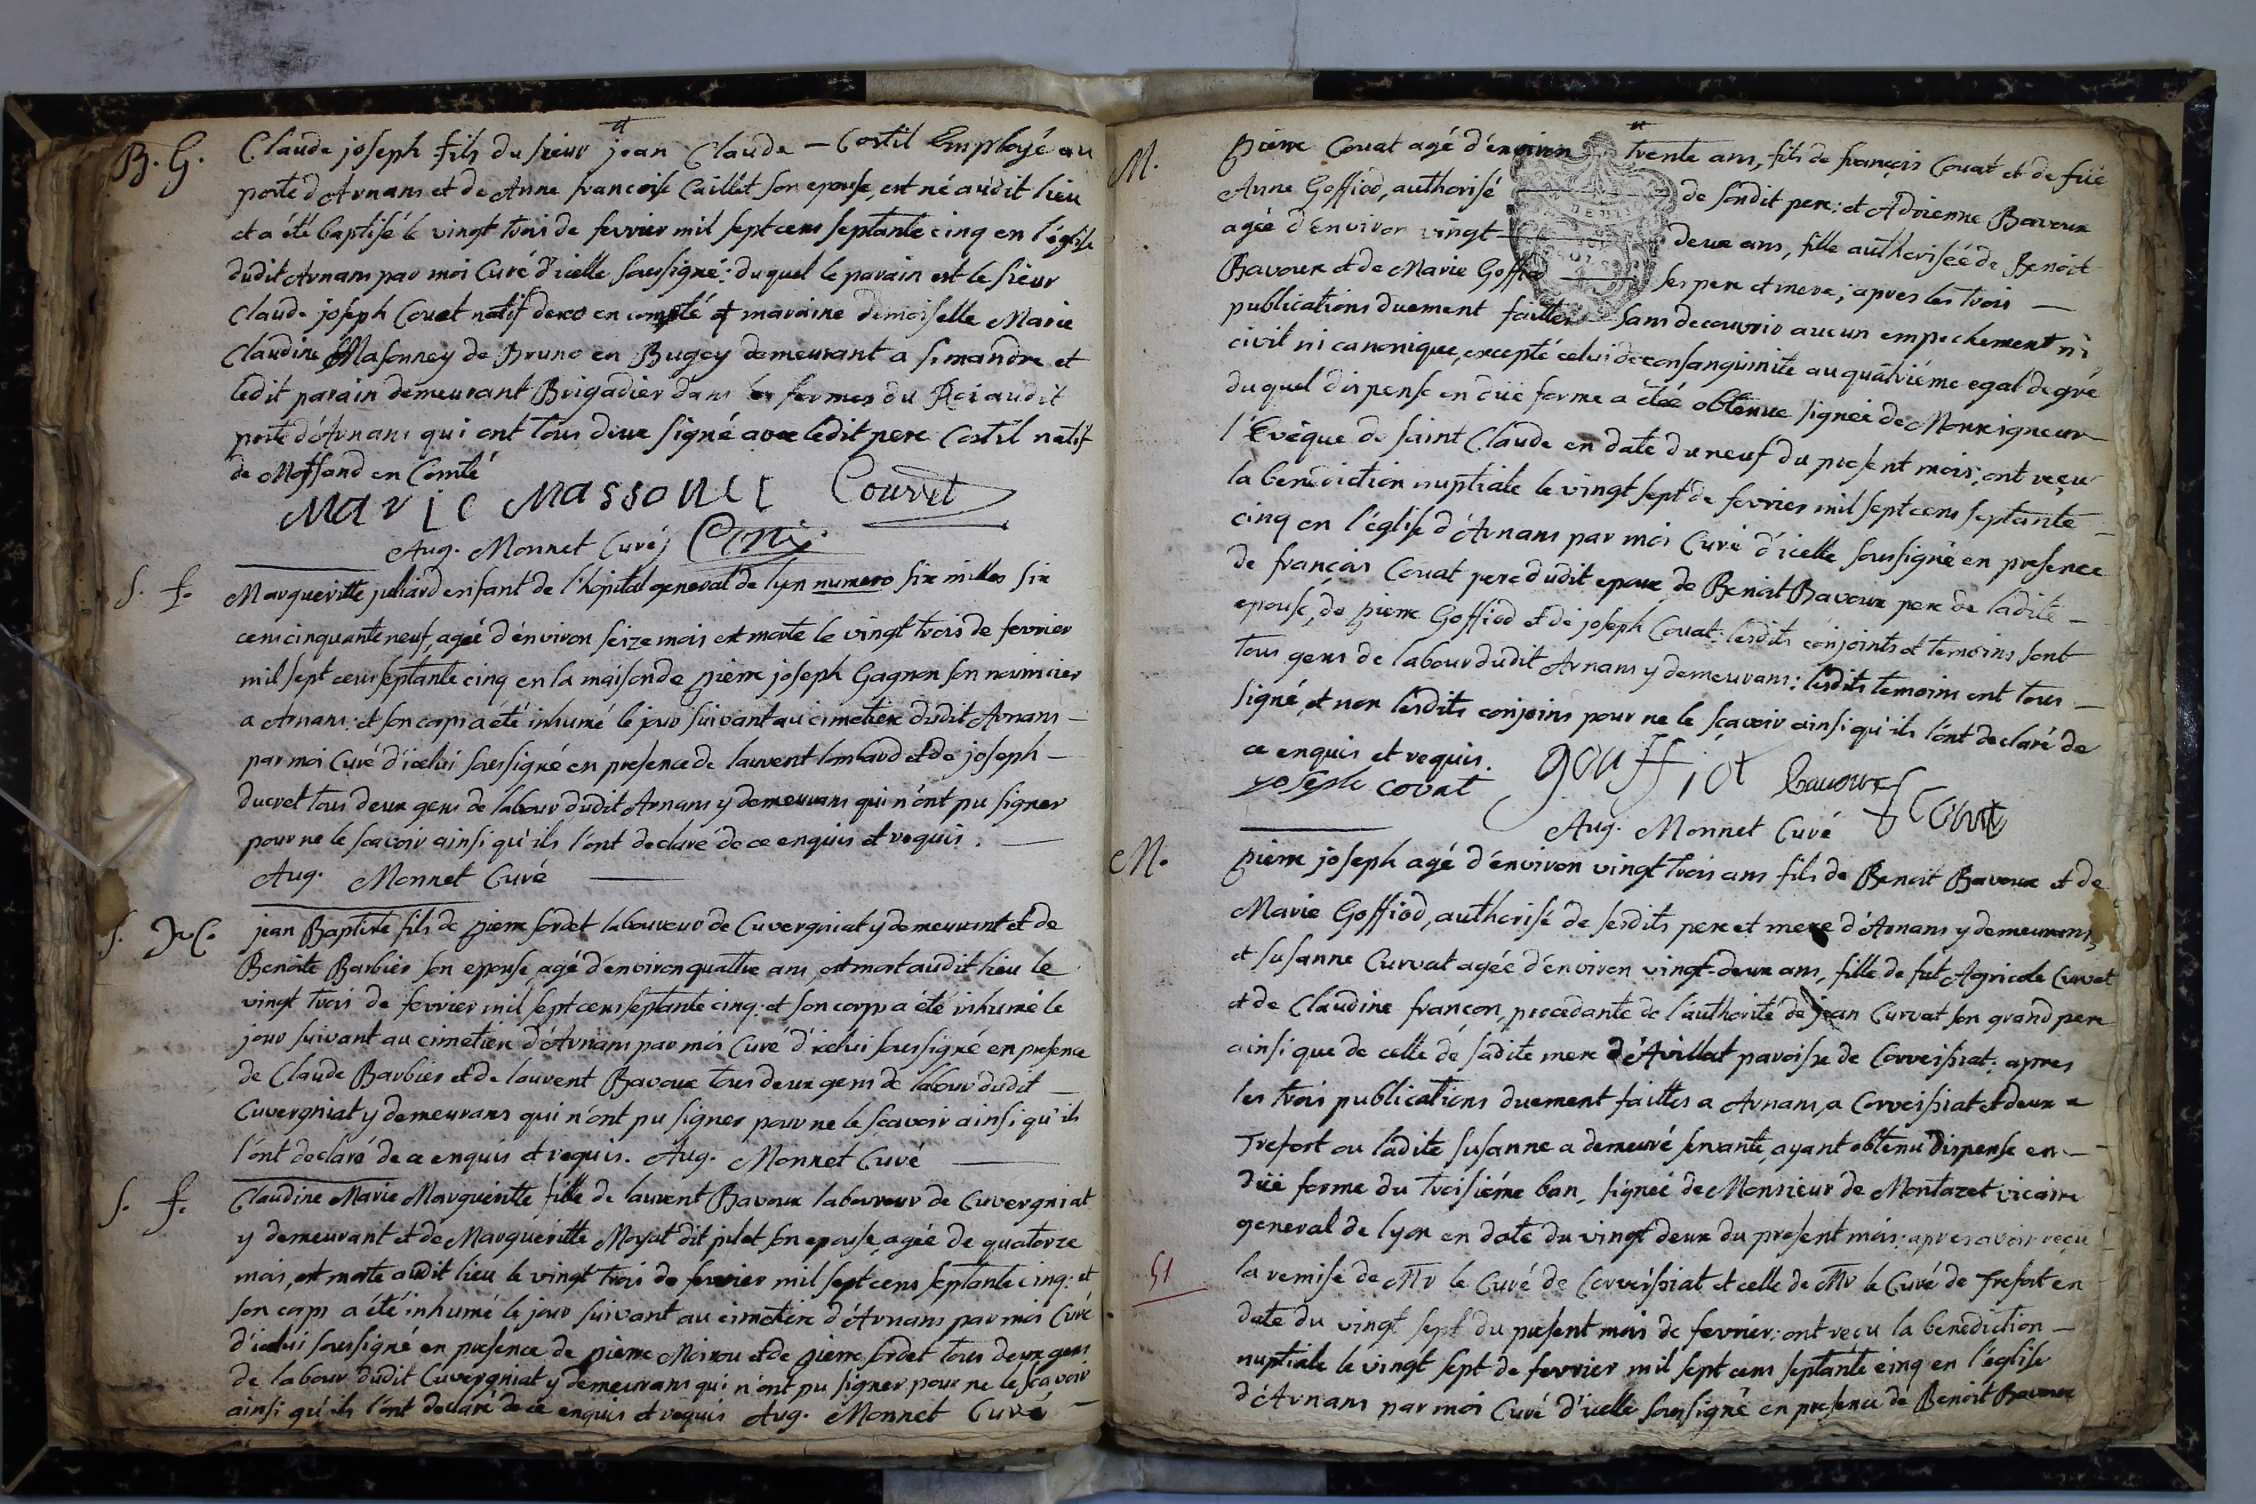 B. G.
Claude joseph fils du sieur jean Claude — Costil Employé au
poste d'Arnans et de Anne francoise Caillet son epouse, est né audit lieu
et a été baptisé le vingt trois de fevrier mil sept cens septante cinq en l'église
dudit Arnans par moi Curé d'icelle soussigné: duquel le parain est le sieur
Claude joseph Couet natif de en comté et maraine demoiselle Marie
Claudine Masonney de Bruno en Bugey demeurant a simandre et
ledit parain demeurant Brigadier dans les fermes du Roi audit
poste d'Arnans qui ont tous deux signé avec ledit pere Costil natif
de Moffand en Comté
Marie Massonei Courvet
Aug. Monnet Curé
S. f.
Margueritte juliard enfant de l'hôpital general de lyon numero six milles six
cens cinquante neuf, agée d'énviron seize mois est morte le vingt trois de fevrier
mil sept cens septante cinq en la maison de pierre joseph Gagnon son nourricier
a Arnans: et son corps a été inhumé le jour suivant au cimetiere dudit Arnans —
par moi Curé d'icelui soussigné en presence de laurent lombard et de joseph —
ducret tous deux gens de labour dudit Arnans y demeurans qui n'ont pu signer
pour ne le scavoir ainsi qu'ils l'ont declaré de ce enquis et requis. —
Aug. Monnet Curé —
S.
jean Baptiste fils de pierre sordet laboureur de Cuvergniat y demeurant et de
Benoite Barbier son epouse, agé d'environ quattre ans, est mort audit lieu le
vingt trois de fevrier mil sept cens septante cinq: et son corps a été inhumé le
jour suivant au cimetiere d'Arnans par moi Curé d'icelui soussigné en presence
de Claude Barbier et de laurent Bavoux tous deux gens de labour dudit
Cuvergniat y demeurans qui n'ont pu signer pour ne le sçavoir ainsi qu'ils
l'ont declaré de ce enquis et requis. Aug. Monnet Curé —
S. f.
Claudine Marie Margueritte fille de laurent Bavoux laboureur de Cuvergniat
y demeurant et de Margueritte Moyat dit pilot son epouse, agée de quatorze
mois, est morte audit lieu le vingt trois de fevrier mil sept cens septante cinq: et
son corps a été inhumé le jour suivant au cimetiere d'Arnans par moi Curé
d'icelui soussigné en presence de pierre Moirou et de pierre sordet tous deux gens
de labour dudit Cuvergniat y demeurans qui n'ont pu signer pour ne le scavoir
ainsi qu'ils l'ont declaré de ce enquis et requis Aug. Monnet Curé —
M.
pierre Couat agé d'énviron trente ans, fils de françois Couat et de füe
Anne Goffiod, authorisé — de sondit pere: et Adrienne Bavoux
agée d'énviron vingt — deux ans, fille authorisée de Benoit
Bavoux et de Marie Goffiod — ses pere et mere; apres les trois —
publications duement faittes sans decouvrir aucun empechement ni
civil ni canonique, excepté celui de consanguinité au quatriéme egal degré
duquel dispense en düe forme a été obtenue signée de Monseigneur
l'Evêque de saint Claude en date du neuf du present mois; ont reçu
la benediction nuptiale le vingt sept de fevrier mil sept cens septante
cinq en l'église d'Arnans par moi Curé d'icelle soussigné en presence
de françois Couat pere dudit epoux de Benoit Bavoux pere de ladite —
epouse, de pierre Goffiod et de joseph Couat: lesdits conjoints et temoins sont
tous gens de labour dudit Arnans y demeurans: lesdits temoins ont tous —
signé, et non lesdits conjoins pour ne le scavoir ainsi qu'ils l'ont declaré de
ce enquis et requis.
joseph covat gouffiot bavoux f covat
Aug. Monnet Curé
M.
pierre joseph agé d'énviron vingt trois ans fils de Benoit Bavoux et de
Marie Goffiod, authorisé de sesdits pere et mere d'Arnans y demeurans,
et susanne Curvat agée d'énviron vingt-deux ans, fille de fut Agricole Curvat
et de Claudine françon, procedante de l'authorité de jean Curvat son grand pere
ainsi que de celle de sadite mere d'Avillat paroisse de Corveissiat: apres
les trois publications duement faittes a Arnans, a Corveissiat et deux a
Trefort ou ladite susanne a demeuré servante, ayant obtenu dispense en —
düe forme du troisiéme ban, signée de Monsieur de Montazet vicaire
general de lyon en date du vingt deux du present mois: apres avoir reçu
51
la remise de Mr le Curé de Corveissiat et celle de Mr le Curé de Trefort en
date du vingt sept du present mois de fevrier: ont reçu la benediction —
nuptiale le vingt sept de fevrier mil sept cens septante cinq en l'église
d'Arnans par moi Curé d'icelle soussigné en presence de Benoit Bavoux